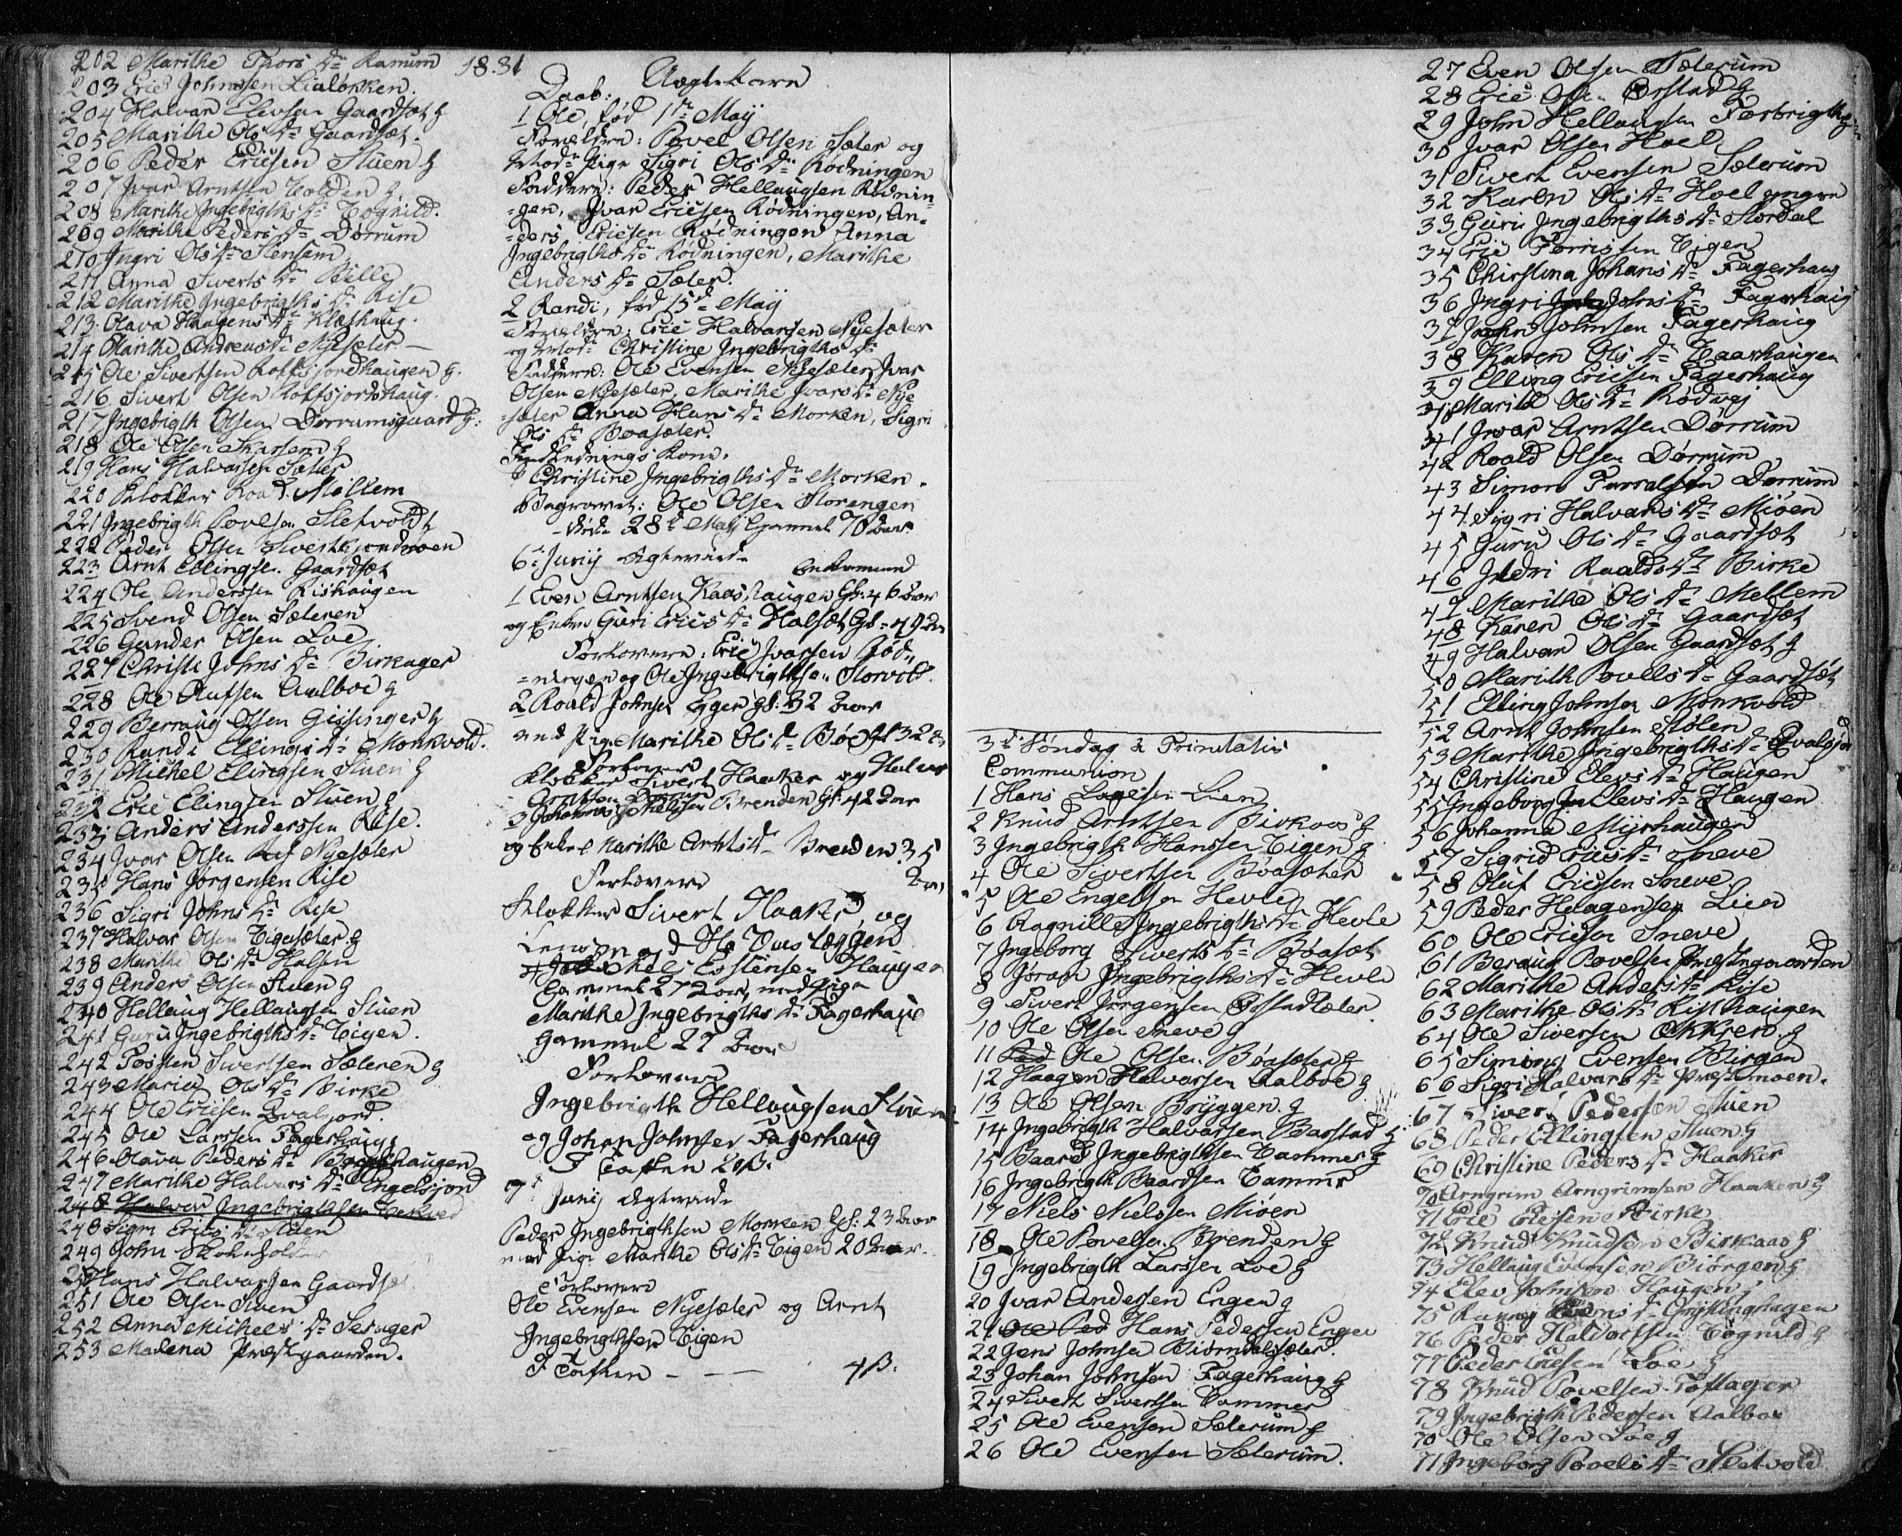 202 Marithe Thors Dr Ramum
203 Eric Johnssen Lialøkken.
204 Halvar Elevsen Gaardsæt g
205 Marithe Ols Dr Gaardsæt.
206 Peder Ericsen Stuen g
207 Jvar Arntsen Volden g
208 Marithe Ingebrigths Dr Tøgnild.
209 Marithe Peders Dr Dørrum
210 Ingri Ols Dr Stensem
211 Anna Siverts Dr Bælle
212 Marithe Ingebrigths Dr Rise
213 Olava Haagens Dr Klæshaug.
214 Marithe Andreas Dr Nyesæter
215 Ole Sivertsen Rottsjordhaugen g.
216 Sivert Olsen Rottsjordhaug.
217 Ingebrigth Olsen Dørrumsgaard g.
218 Ole Olsen Skarsem g
219 Hans Halvorsen Sæter
220 Klokker Roald Mellem
221 Ingebrigth Povelsen Sletvold g
222 Peder Olsen
223 Arnt Ellingsen Gaardsæt
224 Ole Anderssen Rishaugen
225 Svend Olsen Sæteren
226 Gunder Olsen Loe
227 Christi Johns Dr Birkager
228 Ole Olufsen Aalboe g
229 Beraug Olsen Gissinger g
230 Randi Ellings Dr Monkvold.
231 Michel Elingsen Stuen g
232 Eric Elingsen Stuen g
233 Anders Anderssen Rise.
234 Jvar Olsen Nyesæter
235 Hans Jørgensen Rise
236 Sigri Johns Dr Rise
237 Halvar Olsen Vigensæter g
238 Marithe Ols Dr Halsen
239 Anders Olsen Stuen g
240 Hellaug Hellaugsen Stuen
241 Guru Ingebrigths Dr Vigen.
242 Tosten Sivertsen Sæteren g
243 Marie Ols Dr Birke
244 Ole Ericsen Qvalsjord.
245 Ole Larsen Fagerhaug
246 Olava Peders Dr
247 Marithe Halvars Dr Engelsjord
248 Halvar Ingebrigthsen
248 Sigri Erics Dr Stuen
249 John Skoleholder
250 Hans Halvarsen Gaardsæt
251 Ole Olsen Stuen
252 Anna Michels Dr Segager
253 Malena Præstgaarden.
1831
Daab: Aegtekarn
1 Ole, fød 1te Maij
Forældre: Povel Olsen Sæter og
Mod: Pige Sigri Ols Dr Rødningen
Faddere: Peder Hellaugsen Rødnin-
-gen, Jvar Ericsen Rødningen, An-
-ders Ericsen Rødningen Anna
Ingebrigths Dr Rødningen, Marithe
Anders Dr Sæter.
2 Randi, fød 15de Maij
Forældre: Eric Halvarsen Nyesæter
og Mod: Christine Ingebrigths Dr
Faddere: Ole Evensen Nyesæter, Jvar
Olsen Nyesæter, Marithe Jvars Dr Nye
-sæter Anna Hans Dr Morken, Sigri
Ols Dr Bøasæter.
Indlednings Kone.
Christine Ingebrigths Dr Morken.
Begravet: Ole Olsen Storengen
død 28de Maij Gammel 70 Aar
6te Junij Ægteviede
Enkemand
1 Even Arntsen Kaashaugen Gl: 46 Aar
og Enke Guri Erics Dr Halsæt Gl: 49 Aar
Forlovere: Eric Jvarsen Rød-
=ningen og Ole Ingebrigthsen Storvold.
2 Roald Johnsen Egger gl: 32 Aar
med Pige Marithe Ols Dr Bøe Gl 32 Aar
Forlovere
Klokker Sivert Haaker og Halvar
Arntsen
3 Johannes Brenden Gl: 42 Aar
og Enke Marithe Arnts Dr Brenden 35
Aar
Forlovere
Klokker Sivert Haaker, og
4 Nels Estensen Haugen
Gammel 27 Aar, med Pige
Marithe Ingebrigths Dr Fagerhaug
Gammel 27 Aar
Forlovere
Ingebrigth Hellaugsen Stuen
og Johan Johnsen Fagerhaug
I Taflen 20ß.
7de Junij Ægteviede
Peder Ingebrigthsen Morken Gl: 23 Aar
med Pige Marithe Ols Dr Vigen 20 Aar.
Forlovere
Ole Evensen Nyesæter og Arnt
Ingebrigthsen Vigen
I Taflen - - - 4ß.
3de Søndag a Trinitatis
Communion
1 Hans Lien
2 Knud Arntsen Birkaas g
3 Ingebrigth Hanssen Vigen g
4 Ole Sivertsen Bøasæter
5 Ole Engelsen Hevle
6 Ragnille Ingebrigths Dr Hevle
7 Ingeborg Siverts Dr Bøasæt
8 Jøran Ingebrigths Dr Hevle
9 Sivert Jørgensen Ørstadsæter.
10 Ole Olsen Sneve g
11 Ole Olsen Bøasæter g
12 Haagen Halvarsen Aalboe g
13 Ole Olsen Bryggen g
14 Ingebrigth Halvarsen Barstad g
15 Baard Ingebrigthsen Vammer g
16 Ingebrigth Baardsen Vammer
17 Niels Nielssen Miøen
18 Ole Povelsen Brenden g
19 Ingebrigth Larssen Loe g
20 Jvar Andersen Engen g
21 Ole Ped Hans Pedersen Engen
22 Jens Johnsen Biørndalsæter.
23 Johan Johnsen Fagerhaug g
24 Sivert Sivertsen Vammer
25 Ole Evensen Sæterum g
26 Ole Evensen Sæterum.
27 Even Olsen Sæterum
28 Eric Olsen Ørstad g
29 John Hellaugsen
30 Jvar Olsen Hoel
31 Sivert Evensen Sæterum
32 Karen Ols Dr Hoel yngre
33 Guri Ingebrigths Dr Stordal
34 Eric Vigen
35 Christina Johans Dr Fagerhaug
36 Ingri Johns Dr Fagerhaug
37 John Johnsen Fagerhaug
38 Karen Ols Dr Vaarhaugen
39 Elling Ericsen Fagerhaug
40 Marith Ols Dr Rødvej
41 Jvar Arntsen Dørrum
42 Roald Olsen Dørrum
43 Simon Dørrum
44 Sigri Halvars Dr Miøen
45 Guru Ols Dr Gaardsæt
46 Roalds Dr Birke
47 Marithe Ols Dr Mellem
48 Karen Ols Dr Gaardsæt
49 Halvar Olsen Gaardsæt g
50 Marith Povels Dr Gaardsæt
51 Elling Johnsen Monkvold
52 Arnt Johnsen Stølen
53 Marithe Ingebrigths Dr Qvalsjord
54 Christine Elevs Dr Haugen
55 Ingeborg Elevs Dr Haugen
56 Johanna Myrhaugen
57 Sigrid Erics Dr Sneve
58 Oluf Ericsen Sneve
59 Peder Haagensen Lien
60 Ole Ericsen Sneve
61 Beraug Povelsen Præstgaarden
62 Marithe Anders Dr Rise
63 Marithe Ols Dr Risthaugen
64 Ole Sivertsen g
65 Simon Evensen Biørgen
66 Sigri Halvars Dr Præstmoen.
67 Sivert Pedersen Stuen
68 Peder Ellingsen Stuen g
69 Christine Peders Dr Haaker
70 Arngrim Arngrimsen Haaker g
71 Eric Ericsen Birke
72 Knud Knudsen Birkaas g
73 Hellaug Evensen Biørgen g
74 Elev Johnsen Haugen g
75 Ranney Dr Gryttinghagen
76 Peder Haldorssen Tøgnild g
77 Peder Ericsen Loe g
78 Knud Povelsen Toftager
79 Ingebrigth Pedersen Aalboe
70 Ole Olsen Loe g
71 Ingeborg Povels Dr Sletvold